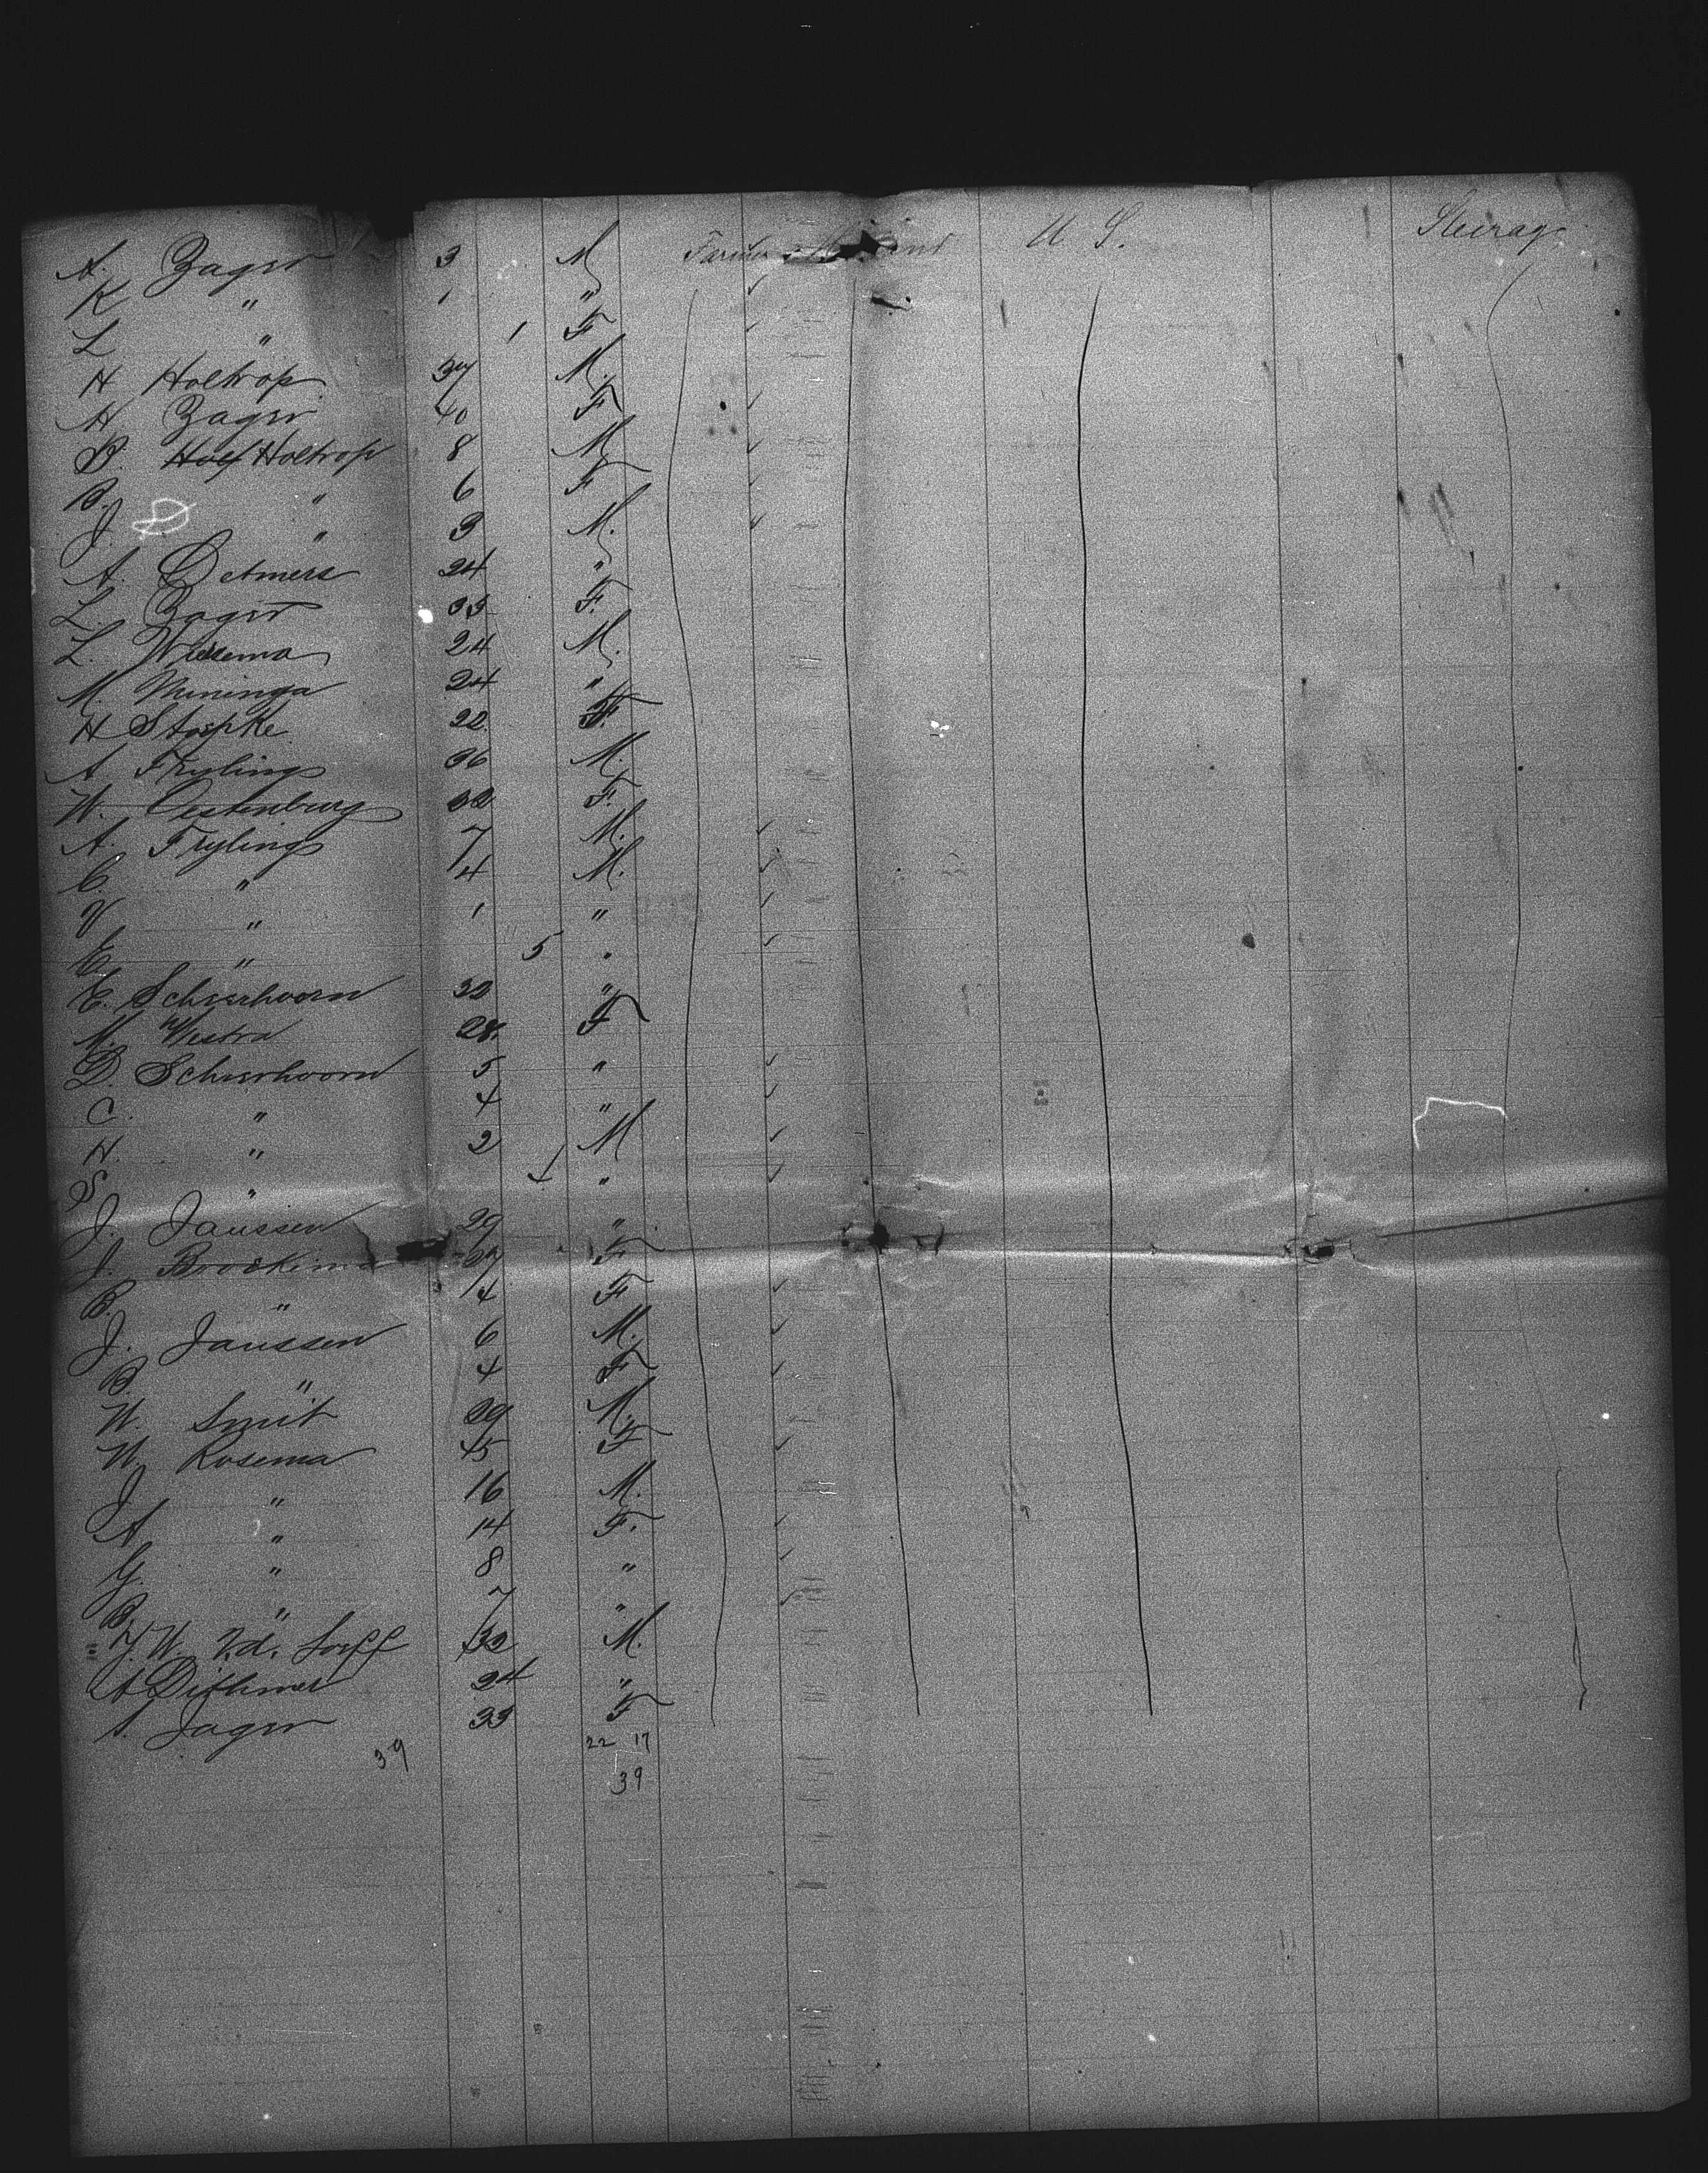 A. Zager 3 M Farmer Holland U S. Steerage
K " 1 "
L " 1 F
H Holtrop 37 M.
A Zager 40 F
D. Holtrop 8 M
B. " 6 F
J. " 3 M.
A. Detmers 24 "
L. Zager 33 F.
L. Wiersema 24 M.
M. Meninga 24 "
H 22 F.
A Frylings 36 M.
W. Oestenburg 32 F.
A. Frylings 7 M.
C. " 4 M.
V " 1 "
E " 5 "
E. Schierhoorn 32 "
M. Westra 28 F
D. Schierhoorn 5 "
C. " 4 "
H. " 2 M
S " 4 "
J. Janssen 29 "
J. 37 F
B. " 14 F
J. Janssen 6 M.
B. " 4 F
W. Smit 29 M.
W. Rosema 45 F
J " 16 M.
A " 14 F.
G. " 8 "
B. " 7 "
J. W. V.d. 32 M.
A Dithmer 24 "
Jager 33 F
39 22 17
39